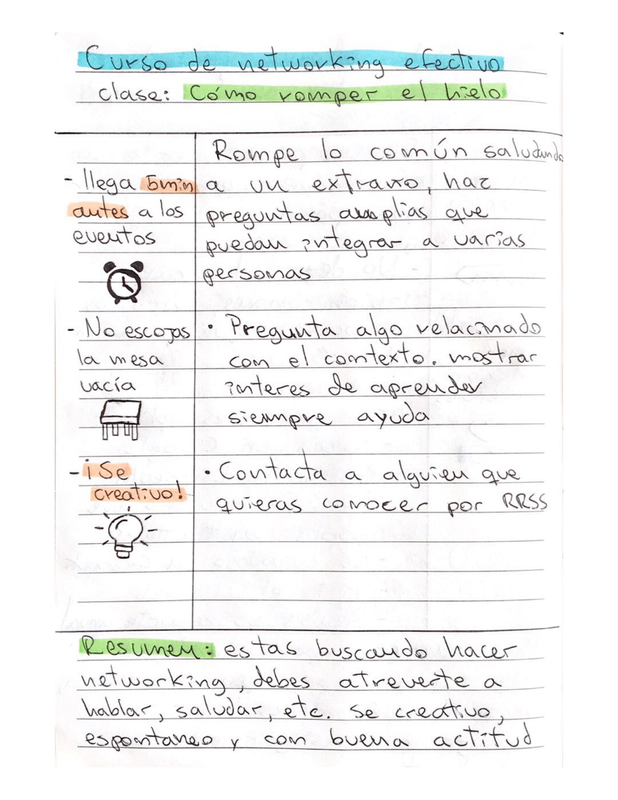 Curso de networking efectivo
clase: Cómo romper el hielo
- llega 5min
antes a los
eventos
- No escojas
la mesa
vacía
- ¡Se
creativo!
Rompe lo común saludando
a un extraño, haz
preguntas amplias que
puedan integrar a varias
personas
• Pregunta algo relacinado
con el contexto. mostrar
interes de aprender
siempre ayuda
• Contacta a alguien que
quieras conocer por RRSS
Resumen: estas buscando hacer
networking, debes atreverte a
hablar, saludar, etc. Se creativo,
espontaneo y con buena actitud